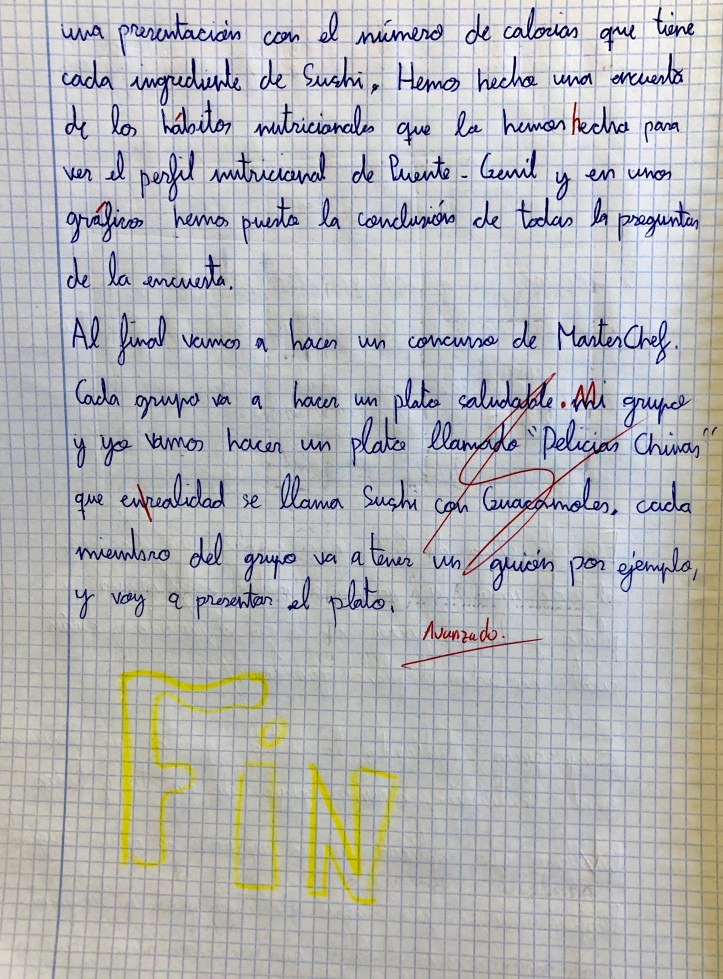 una presentación con el número de calorias que tiene
cada ingrediente de Sushi. Hemos hecho una encuesta
de los hábitos nutricionales que la hemos hecho para
ver el perfil nutricional de Puente-Genil y en unos
gráficos hemos puesto la conclusión de todas la preguntas
de la encuesta.
Al final vamos a hacer un concurso de MasterChef.
Cada grupo va a hacer un plato saludable. Mi grupo
y yo vamos hacer un plato llamado "Delicias Chinas"
que en realidad se llama Sushi con Guacamoles, cada
miembro del grupo va a tener un guión por ejemplo,
y voy a presentar el plato.
Avanzado.
FiN